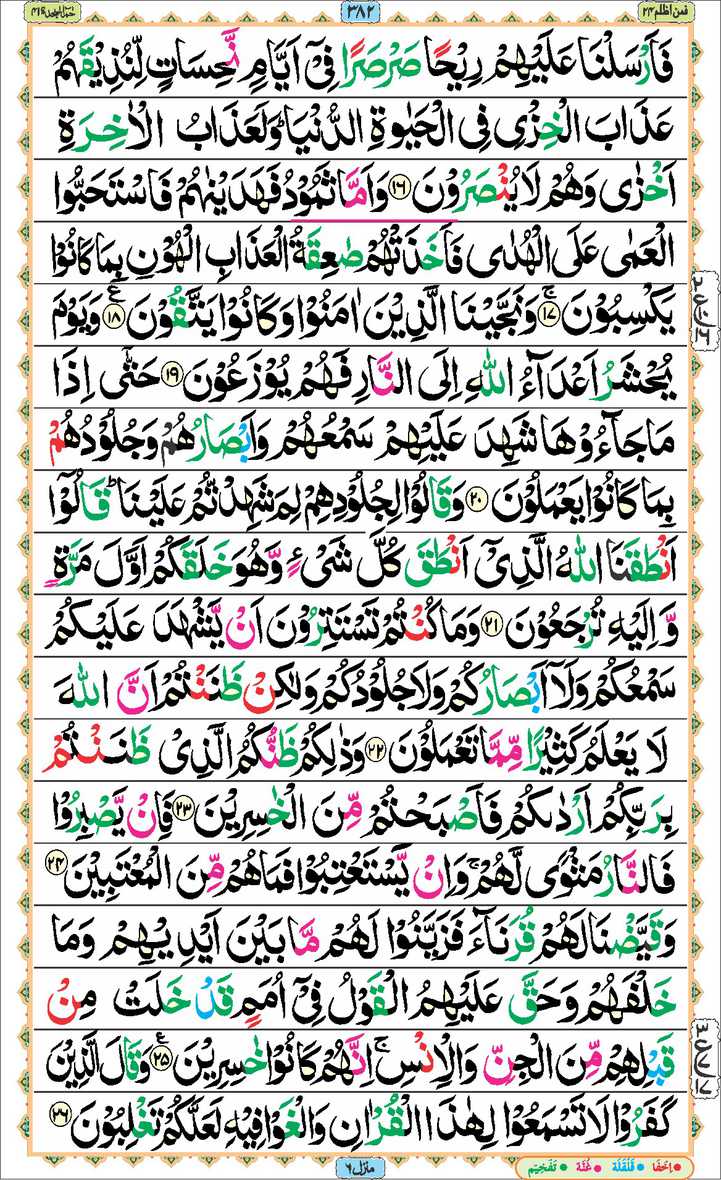 فمن اظلم ۲۴
۳۸۲
حٰمٓ السجدۃ ۴۱
فَاَرۡسَلۡنَا عَلَيۡهِمۡ رِيۡحًا صَرۡصَرًا فِىۡۤ اَيَّامٍ نَّحِسَاتٍ لِّنُذِيۡقَهُمۡ
عَذَابَ الۡخِزۡىِ فِى الۡحَيٰوةِ الدُّنۡيَا‌ؕ وَلَعَذَابُ الۡاٰخِرَةِ
اَخۡزٰى وَهُمۡ لَا يُنۡصَرُوۡنَ ۱۶ وَاَمَّا ثَمُوۡدُ فَهَدَيۡنٰهُمۡ فَاسۡتَحَبُّوا
الۡعَمٰى عَلَى الۡهُدٰى فَاَخَذَتۡهُمۡ صٰعِقَةُ الۡعَذَابِ الۡهُوۡنِ بِمَا كَانُوۡا
يَكۡسِبُوۡنَ‌ۚ ۱۷ وَنَجَّيۡنَا الَّذِيۡنَ اٰمَنُوۡا وَكَانُوۡا يَتَّقُوۡنَ ۱۸ وَيَوۡمَ
يُحۡشَرُ اَعۡدَآءُ اللّٰهِ اِلَى النَّارِ فَهُمۡ يُوۡزَعُوۡنَ ۱۹ حَتّٰٓى اِذَا
مَا جَآءُوۡهَا شَهِدَ عَلَيۡهِمۡ سَمۡعُهُمۡ وَاَبۡصَارُهُمۡ وَجُلُوۡدُهُمۡ
بِمَا كَانُوۡا يَعۡمَلُوۡنَ ۲۰ وَقَالُوۡا لِجُلُوۡدِهِمۡ لِمَ شَهِدْتُّمۡ عَلَيۡنَا‌ؕ قَالُوۡۤا
اَنۡطَقَنَا اللّٰهُ الَّذِىۡۤ اَنۡطَقَ كُلَّ شَىۡءٍ وَّهُوَ خَلَقَكُمۡ اَوَّلَ مَرَّةٍ
وَّاِلَيۡهِ تُرۡجَعُوۡنَ ۲۱ وَمَا كُنۡتُمۡ تَسۡتَتِرُوۡنَ اَنۡ يَّشۡهَدَ عَلَيۡكُمۡ
سَمۡعُكُمۡ وَلَاۤ اَبۡصَارُكُمۡ وَلَا جُلُوۡدُكُمۡ وَلٰكِنۡ ظَنَنۡتُمۡ اَنَّ اللّٰهَ
لَا يَعۡلَمُ كَثِيۡرًا مِّمَّا تَعۡمَلُوۡنَ ۲۲ وَذٰلِكُمۡ ظَنُّكُمُ الَّذِىۡ ظَنَنۡتُمۡ
بِرَبِّكُمۡ اَرۡدٰٮكُمۡ فَاَصۡبَحۡتُمۡ مِّنَ الۡخٰسِرِيۡنَ ۲۳ فَاِنۡ يَّصۡبِرُوۡا
فَالنَّارُ مَثۡوًى لَّهُمۡ‌ؕ وَاِنۡ يَّسۡتَعۡتِبُوۡا فَمَا هُمۡ مِّنَ الۡمُعۡتَبِيۡنَ ۲۴
وَقَيَّضۡنَا لَهُمۡ قُرَنَآءَ فَزَيَّنُوۡا لَهُمۡ مَّا بَيۡنَ اَيۡدِيۡهِمۡ وَمَا
خَلۡفَهُمۡ وَحَقَّ عَلَيۡهِمُ الۡقَوۡلُ فِىۡۤ اُمَمٍ قَدۡ خَلَتۡ مِنۡ
قَبۡلِهِمۡ مِّنَ الۡجِنِّ وَالۡاِنۡسِ‌ۚ اِنَّهُمۡ كَانُوۡا خٰسِرِيۡنَ ۲۵ وَقَالَ الَّذِيۡنَ
كَفَرُوۡا لَا تَسۡمَعُوۡا لِهٰذَا الۡقُرۡاٰنِ وَالۡغَوۡا فِيۡهِ لَعَلَّكُمۡ تَغۡلِبُوۡنَ ۲۶
منزل ۶
اِخفَا قَلقَلَه غُنَّه تَفخِیم